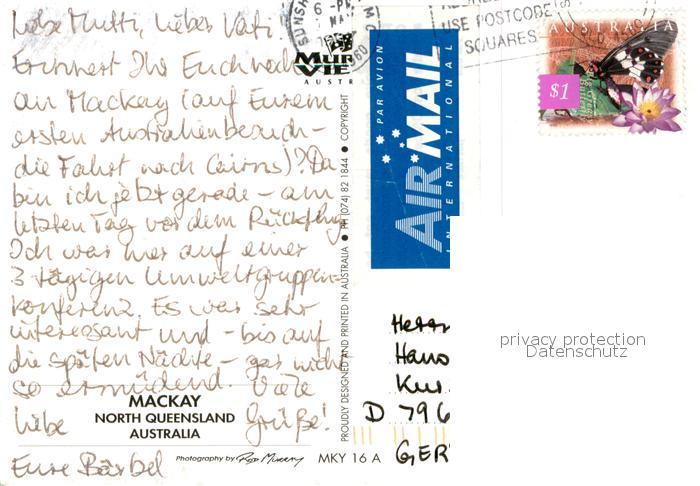 Liebe Mutti, lieber Vati!
Erinnert Ihr Euch noch
an Mackay (auf Eurem
ersten Australienbesuch –
die Fahrt nach Cairns)? Da
bin ich jetzt gerade – am
letzten Tag vor dem Rückflug.
Ich war hier auf einer
3 tägigen Umweltgruppen-
konferenz. Es war sehr
interessant und – bis auf
die späten Nächte – gar nicht
so ermüdend. Viele
liebe Grüße!
Eure Bärbel
MACKAY
NORTH QUEENSLAND
AUSTRALIA
Photography by Rod Murray
MKY 16 A
PROUDLY DESIGNED AND PRINTED IN AUSTRALIA ● PH (074) 82 1844 ● COPYRIGHT
MUR
VIE
AUSTR
6 - PM
USE POSTCODE
SQUARES
PAR AVION
AIR MAIL
INTERNATIONAL
AUSTRALIA
$1
Hans
D 796
GER
privacy protection
Datenschutz